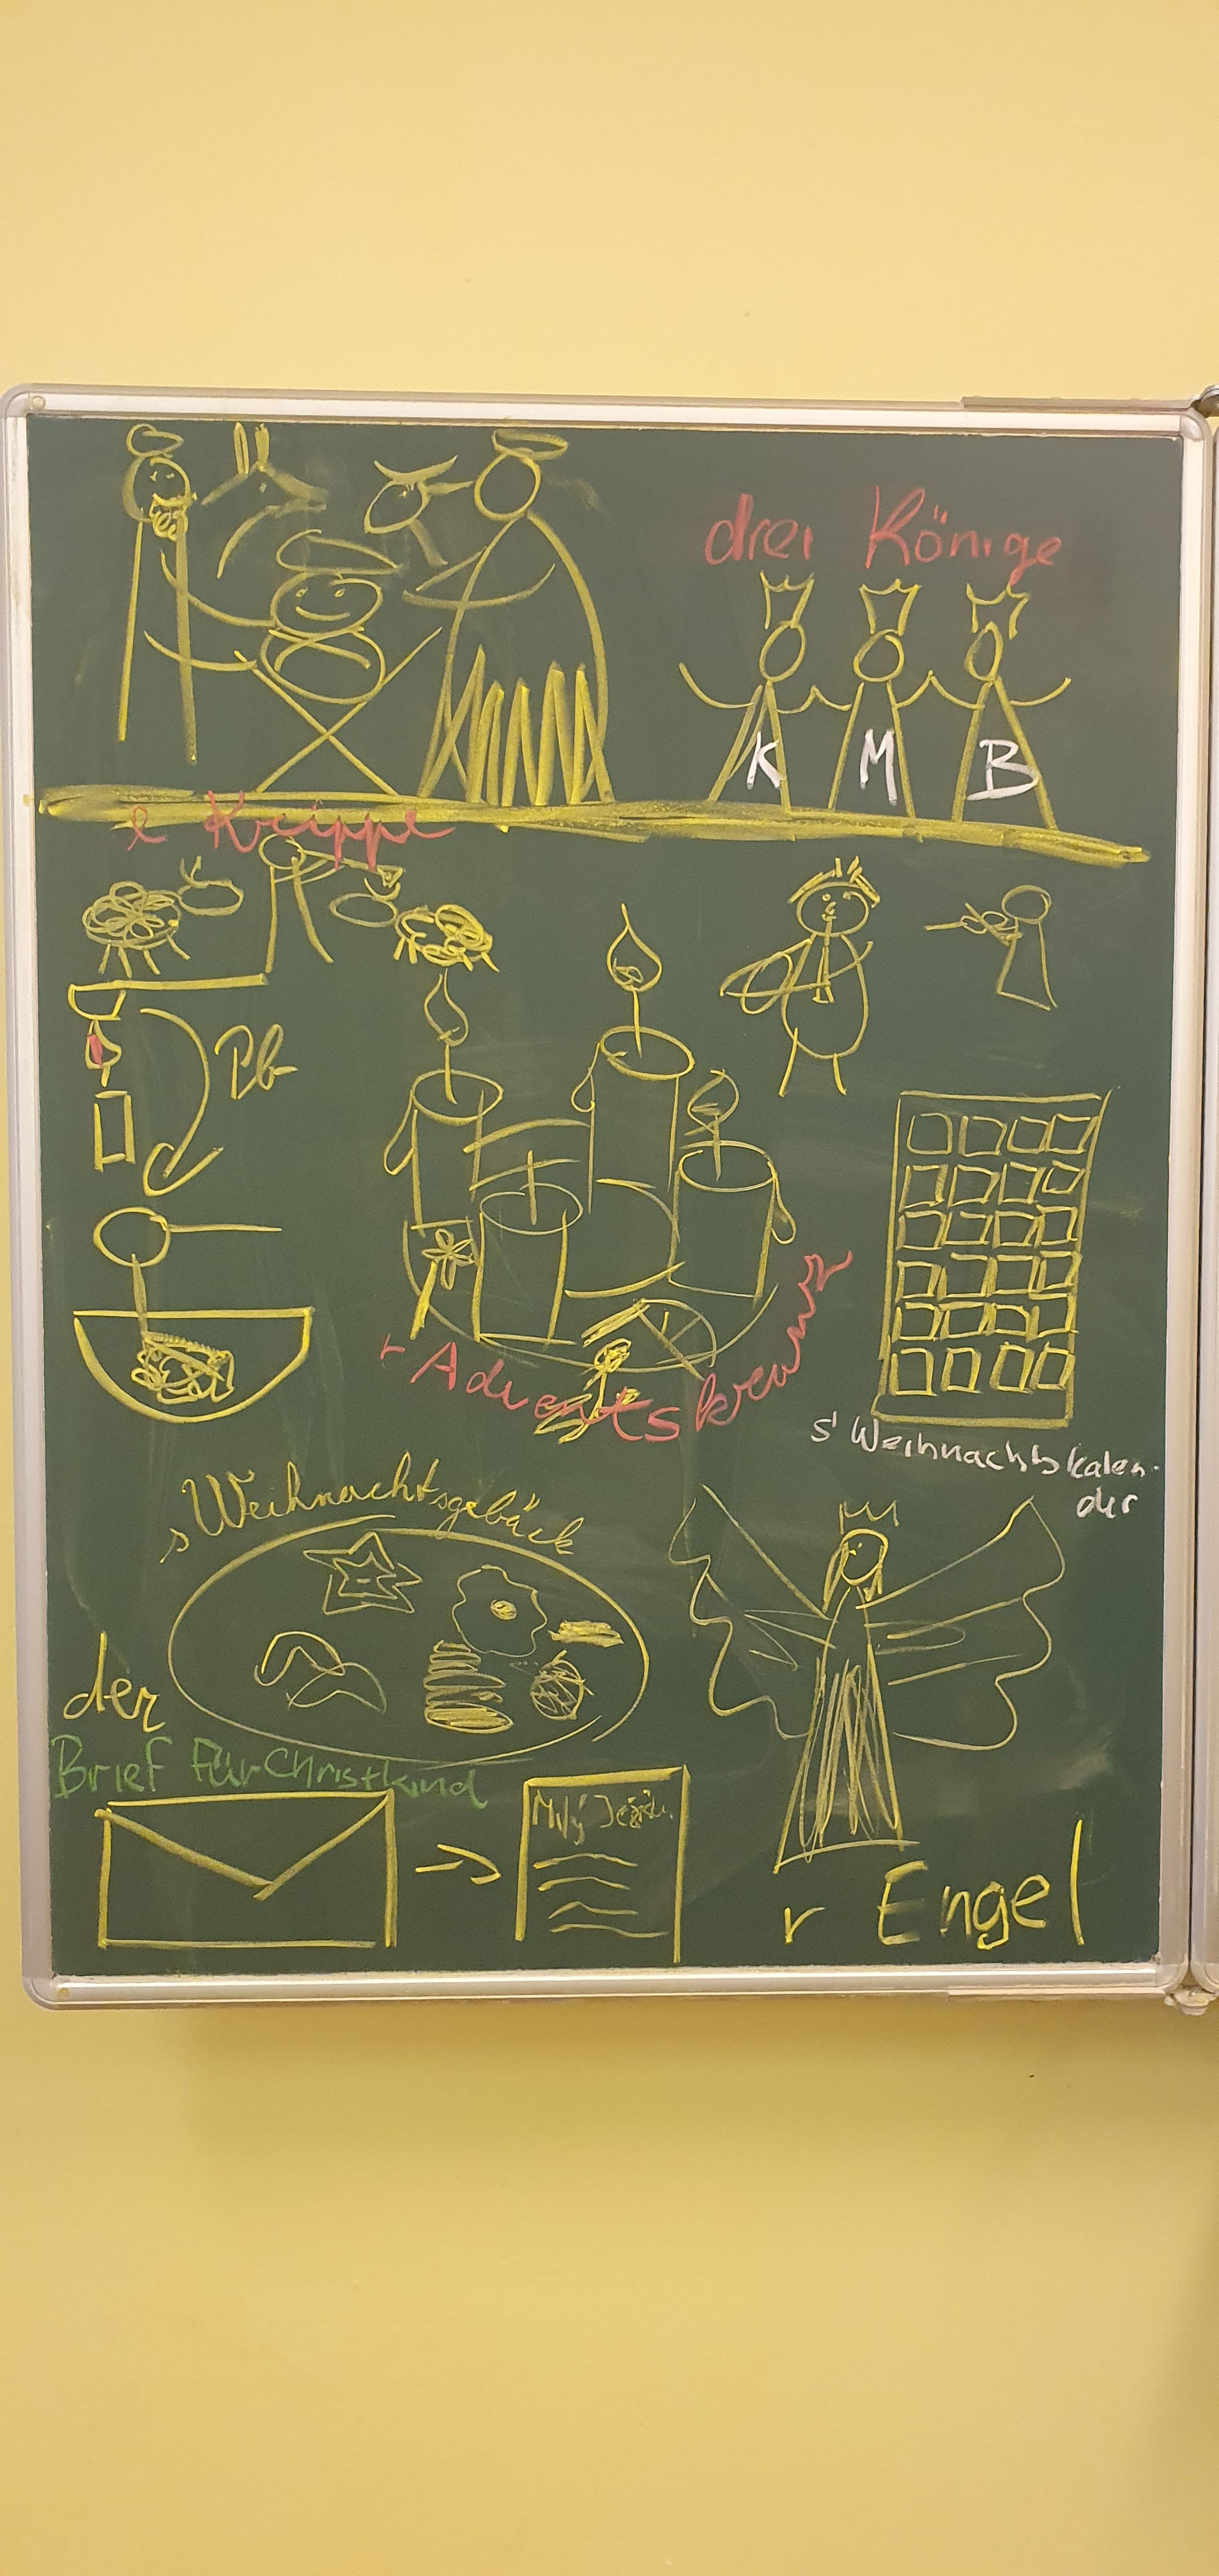 drei Könige
K M B
e Krippe
Pb
r Adventskranz
s' Weihnachtskalen-
der
s Weihnachtsgebäck
der
Brief für Christkind
Milý Ježíš.
r Engel